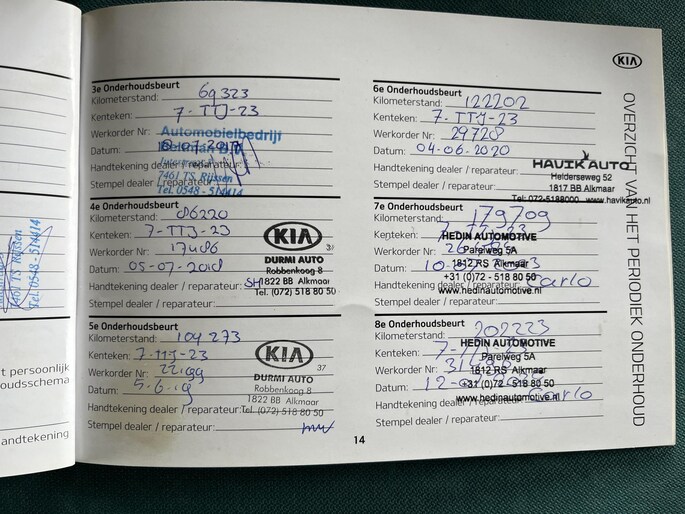 KIA
OVERZICHT VAN HET PERIODIEK ONDERHOUD
3e Onderhoudsbeurt
Kilometerstand: 69323
Kenteken: 7-TTJ-23
Werkorder Nr:
Automobielbedrijf
Datum:
Handtekening dealer / reparateur:
7461 TS Rijssen
Stempel dealer / reparateur:
Tel. 0548 - 514414
4e Onderhoudsbeurt
Kilometerstand: 86220
Kenteken: 7-TTJ-23
Werkorder Nr: 17486
Datum: 05-07-2018
Handtekening dealer / reparateur: SH
Stempel dealer / reparateur:
KIA
DURMI AUTO
Robbenkoog 8
1822 BB Alkmaar
Tel. (072) 518 80 50
5e Onderhoudsbeurt
Kilometerstand: 104 273
Kenteken: 7-TTJ-23
Werkorder Nr: 22199
Datum: 5.6.19
Handtekening dealer / reparateur:
Stempel dealer / reparateur:
KIA
37
DURMI AUTO
Robbenkoog 8
1822 BB Alkmaar
Tel. (072) 518 80 50
6e Onderhoudsbeurt
Kilometerstand: 122202
Kenteken: 7-TTJ-23
Werkorder Nr: 29728
Datum: 04-06-2020
Handtekening dealer / reparateur:
Stempel dealer / reparateur:
HAVIK AUTO
Helderseweg 52
1817 BB Alkmaar
Tel: 072-5188000 www.havikauto.nl
7e Onderhoudsbeurt
Kilometerstand: 179709
Kenteken:
Werkorder Nr:
Datum:
Handtekening dealer / Carlo
Stempel dealer / reparateur:
HEDIN AUTOMOTIVE
Parelweg 5A
1812 RS Alkmaar
+31 (0)72 - 518 80 50
www.hedinautomotive.nl
8e Onderhoudsbeurt
Kilometerstand: 202223
Kenteken:
Werkorder Nr:
Datum:
Handtekening dealer / reparateur: Carlo
Stempel dealer / reparateur:
HEDIN AUTOMOTIVE
Parelweg 5A
1812 RS Alkmaar
+31 (0)72 - 518 80 50
www.hedinautomotive.nl
14
7461 TS Rijssen
Tel. 0548 - 514414
t persoonlijk
oudsschema
andtekening